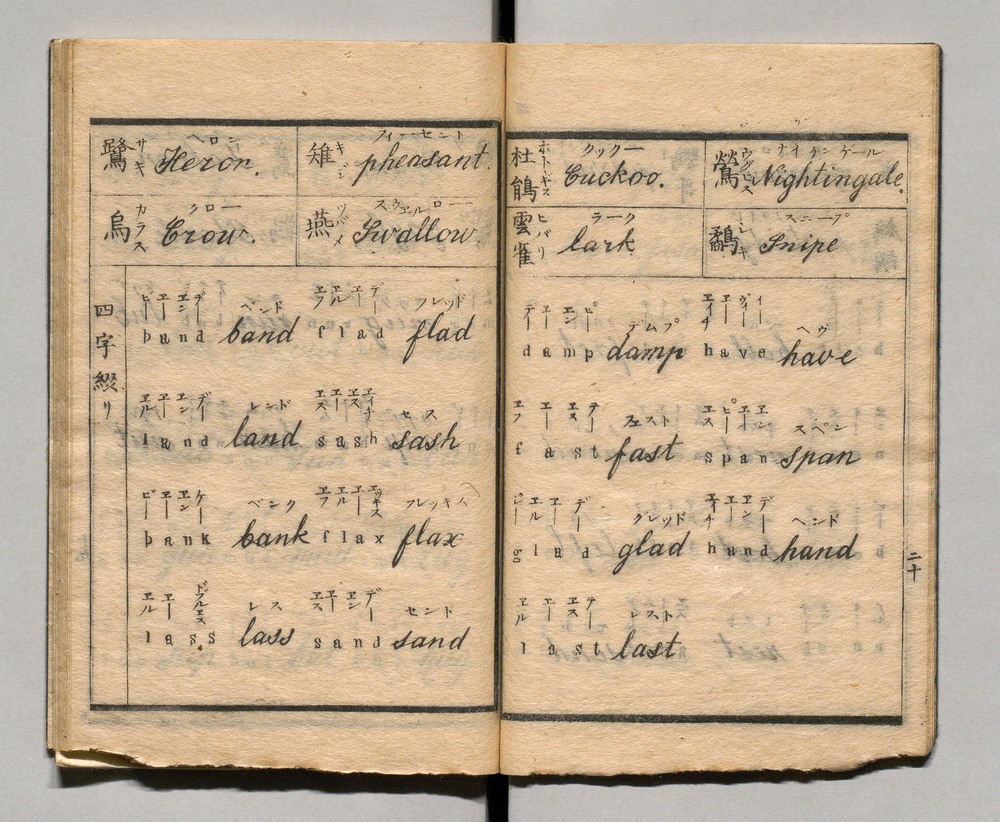 鷺 サギ ヘロン Heron. 雉 キジ フィーセント pheasant.
烏 カラス クロー Crow. 燕 ツバメ スウェルロー Swallow.
四字綴リ
ビー エー エン デー バンド エフ エル エー デー フレッド
band band flad flad
エル エー エン デー レンド エス エー エス エイチ セス
land land sash sash
ビー エー エン ケー ベンク エフ エル エー エッキス フレッキス
bank bank flax flax
エル エー ドブルエス レス エス エー エン デー セント
lass lass sand sand
杜鵑 ホトトギス クックー Cuckoo. 鶯 ウグヒス ナイチンゲール Nightingale.
雲雀 ヒバリ ラーク lark 鷸 シギ スニープ Snipe
デー エー エム ピー デムプ エイチ エー ヴィー イー ヘヴ
damp damp have have
エフ エー エス テー フェスト エス ピー エー エン スペン
fast fast span span
ジー エル エー デー グレッド エイチ エー エン デー ヘンド
glad glad hand hand
エル エー エス テー レスト
last last
二十